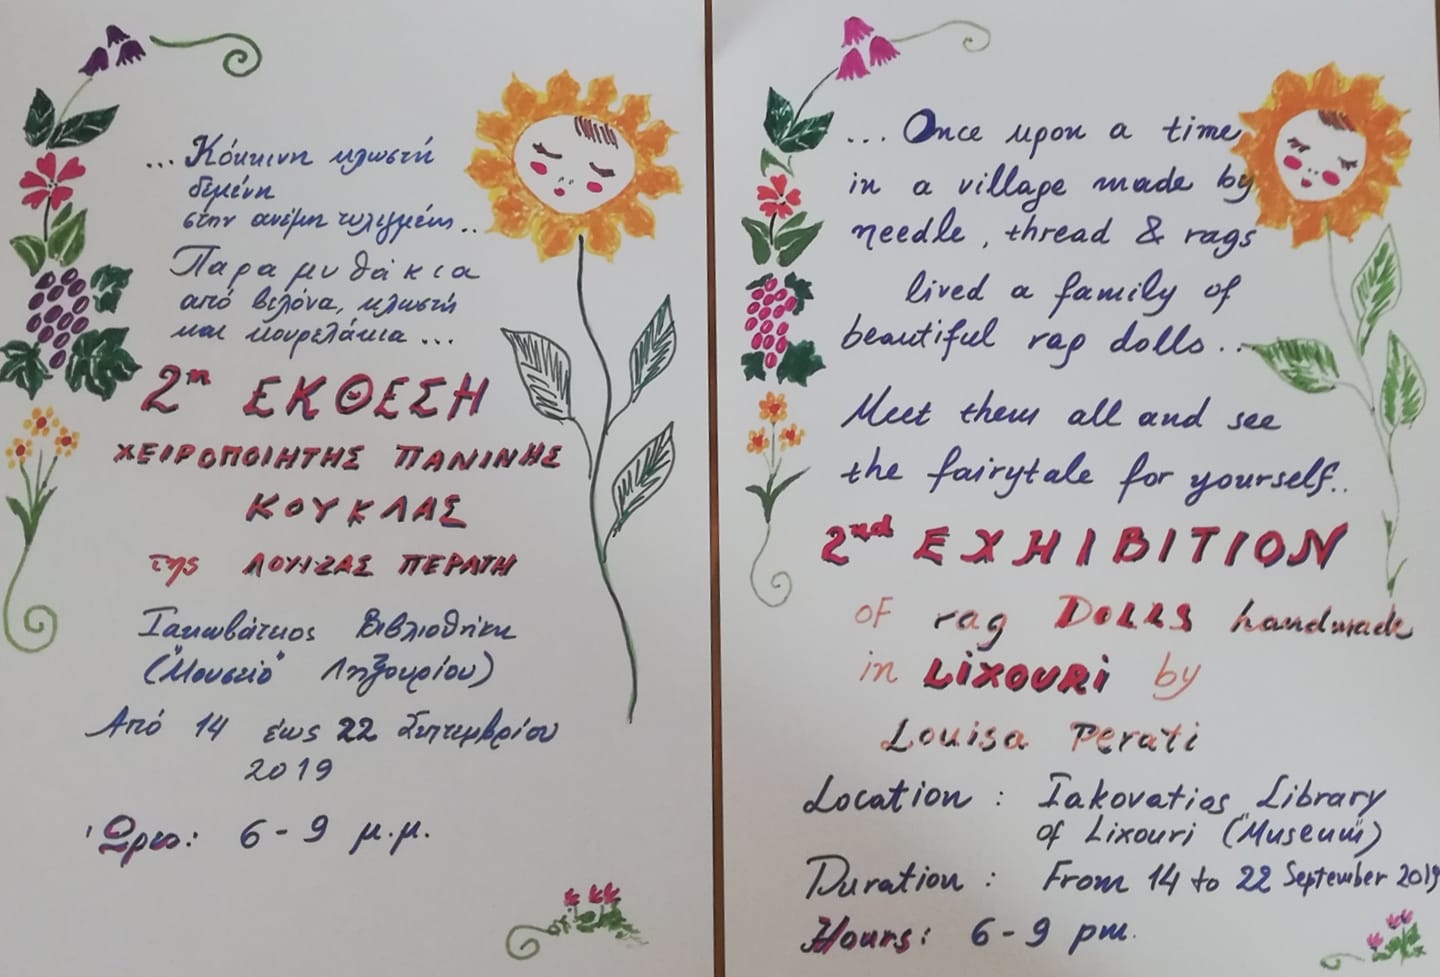 ... Κόκκινη κλωστή
δεμένη
στην ανέμη τυλιγμένη...
Παραμυθάκια
από βελόνα, κλωστή
και κουρελάκια ...
2η ΕΚΘΕΣΗ
ΧΕΙΡΟΠΟΙΗΤΗΣ ΠΑΝΙΝΗΣ
ΚΟΥΚΛΑΣ
της ΛΟΥΙΖΑΣ ΠΕΡΑΤΗ
Ιακωβάτειος Βιβλιοθήκη
("Μουσείο" Ληξουρίου)
Από 14 έως 22 Σεπτεμβρίου
2019
Ώρες: 6-9 μ.μ.
... Once upon a time
in a village made by
needle, thread & rags
lived a family of
beautiful rag dolls...
Meet them all and see
the fairytale for yourself..
2nd EXHIBITION
OF rag DOLLS handmade
in LIXOURI by
Louisa Perati
Location : Iakovatios Library
of Lixouri ("Museum")
Duration : From 14 to 22 September 2019
Hours: 6-9 pm.